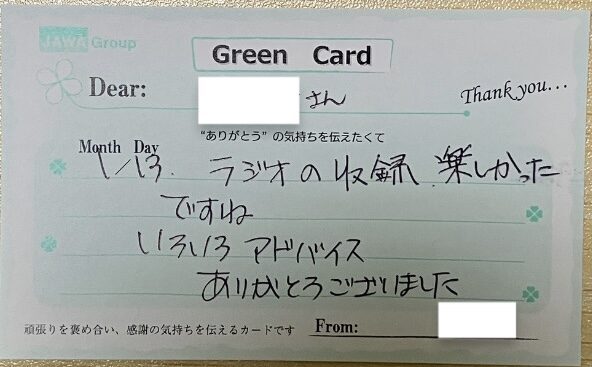 JAWA Group
Green Card
Dear: さん
Thank you...
"ありがとう" の気持ちを伝えたくて
Month Day
1/13. ラジオの収録 楽しかった
ですね
いろいろ アドバイス
ありがとうございました
頑張りを褒め合い、感謝の気持ちを伝えるカードです From: